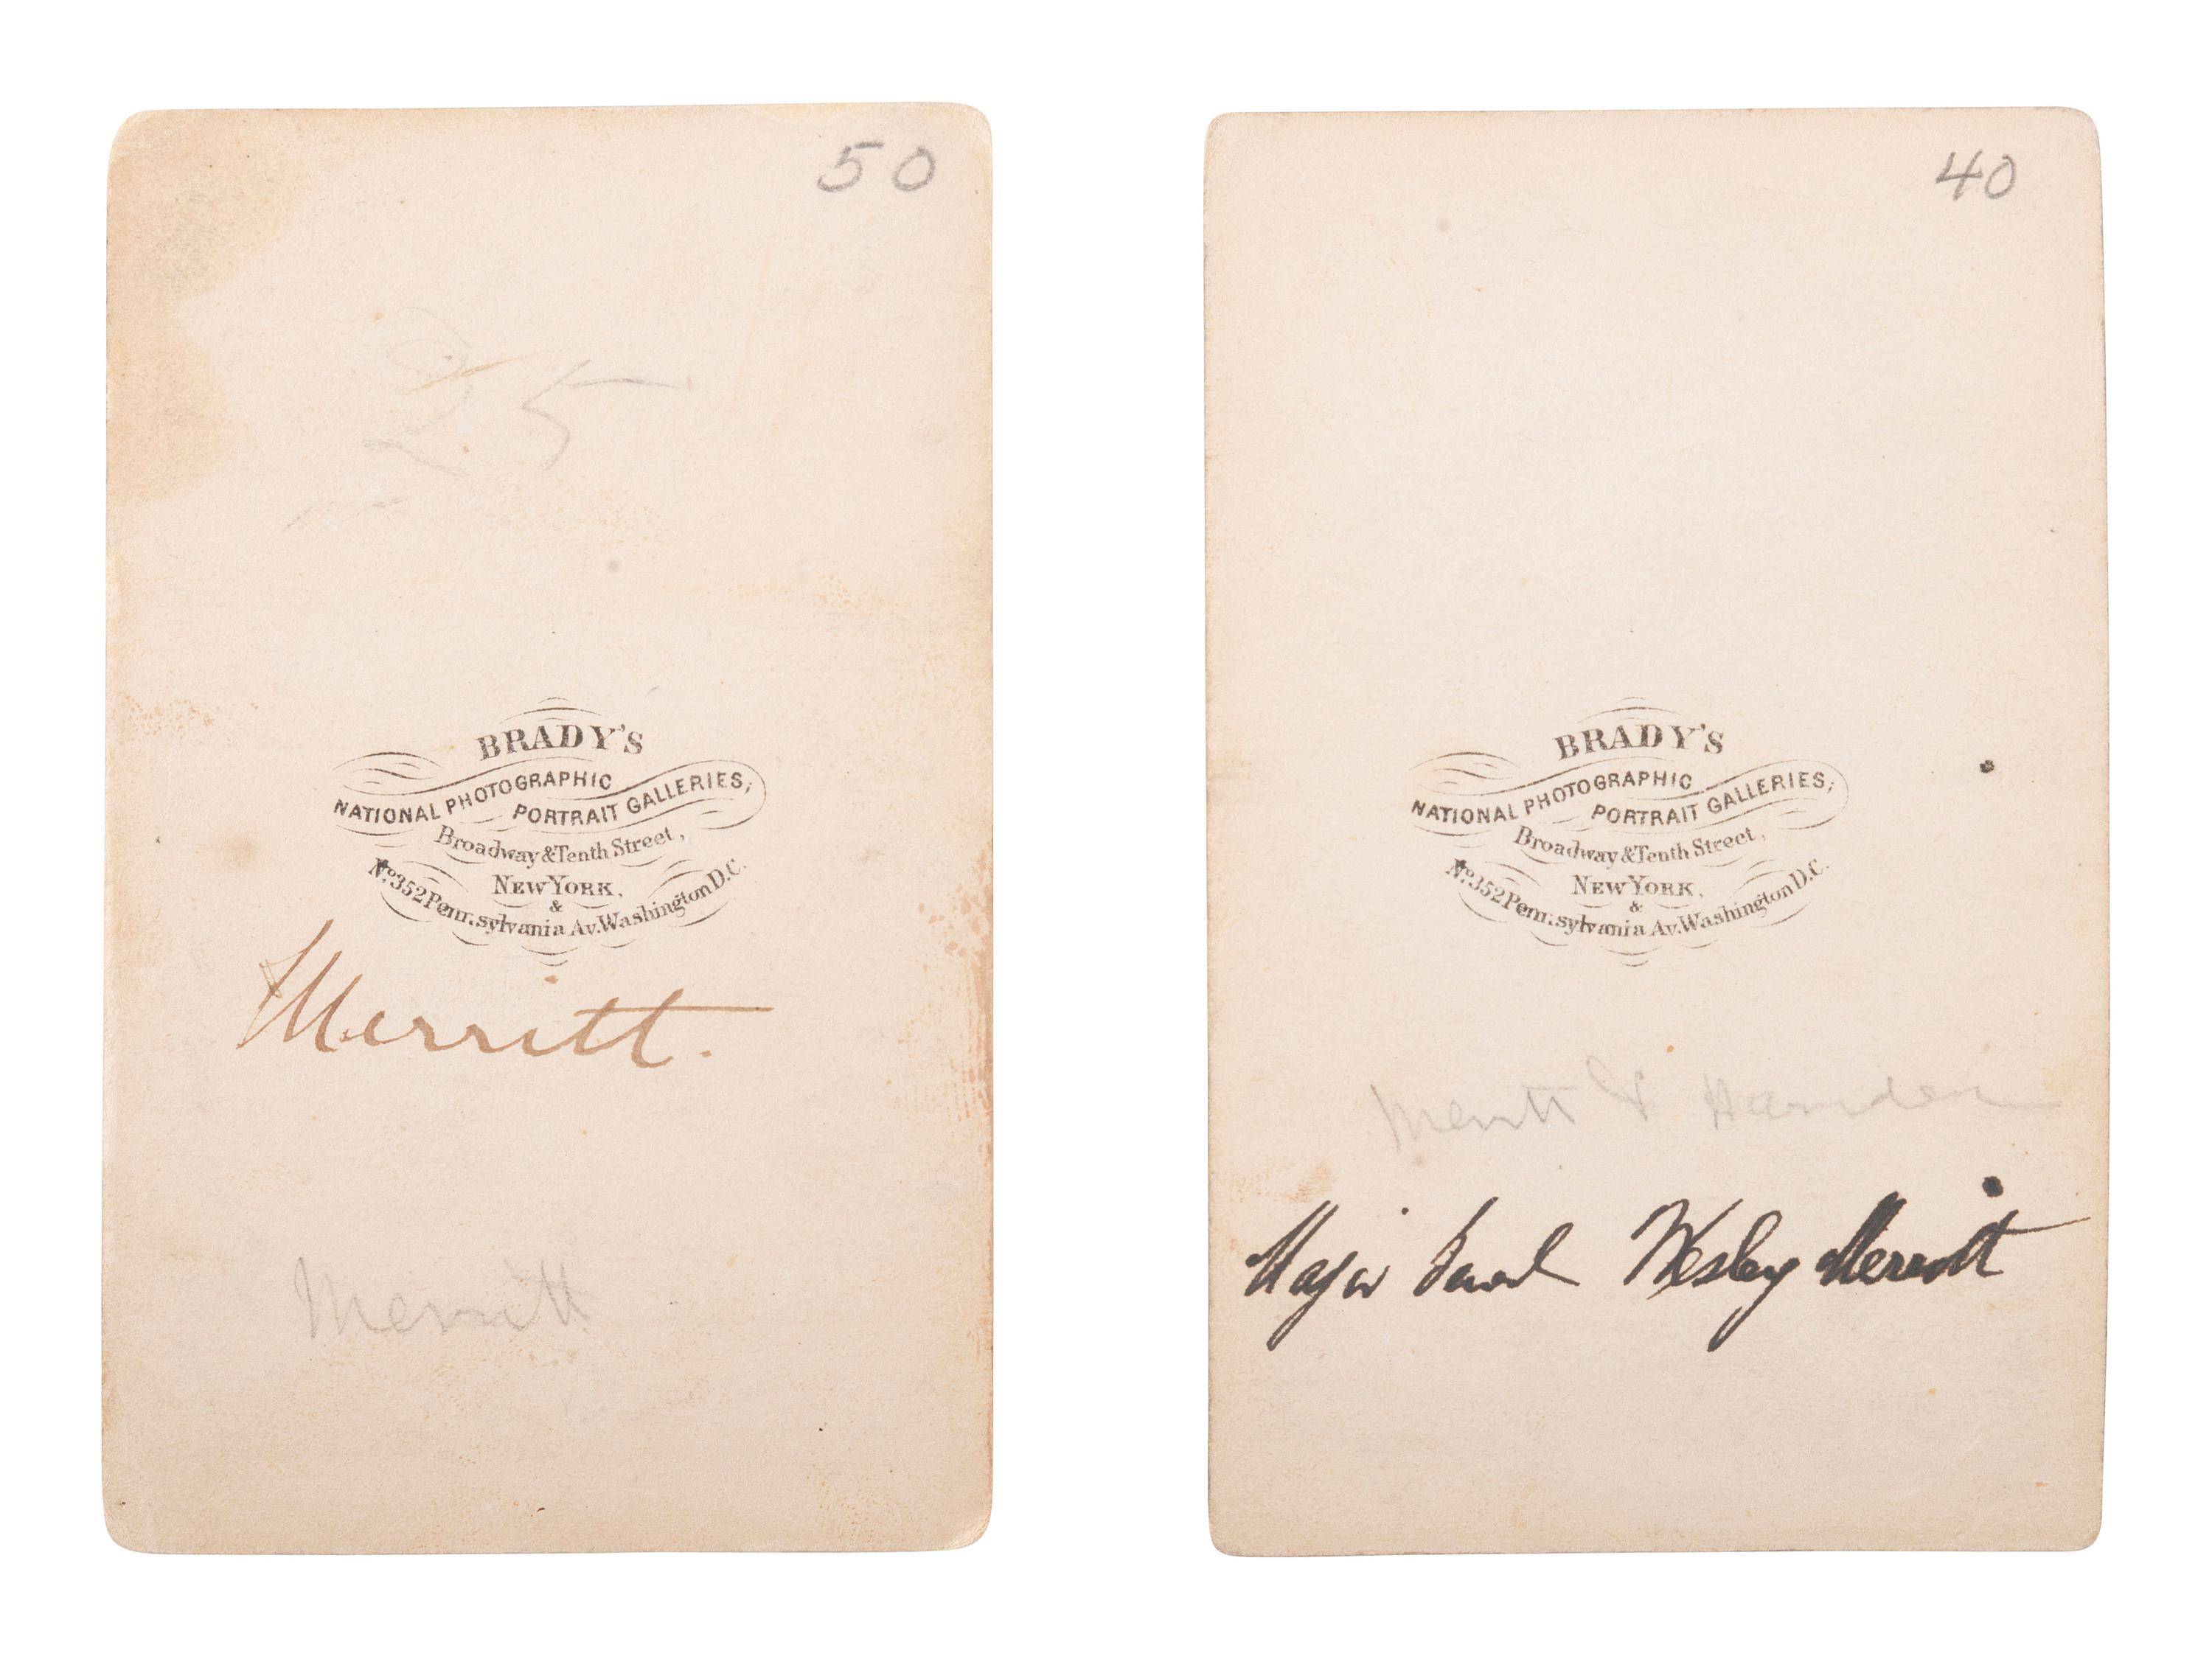 50
25
BRADY'S
NATIONAL PHOTOGRAPHIC
PORTRAIT GALLERIES,
Broadway & Tenth Street,
NEW YORK,
&
No. 352 Pennsylvania Av. Washington D.C.
Merritt.
Merritt
40
BRADY'S
NATIONAL PHOTOGRAPHIC
PORTRAIT GALLERIES,
Broadway & Tenth Street,
NEW YORK,
&
No. 352 Pennsylvania Av. Washington D.C.
Merritt &
Major Wesley Merritt